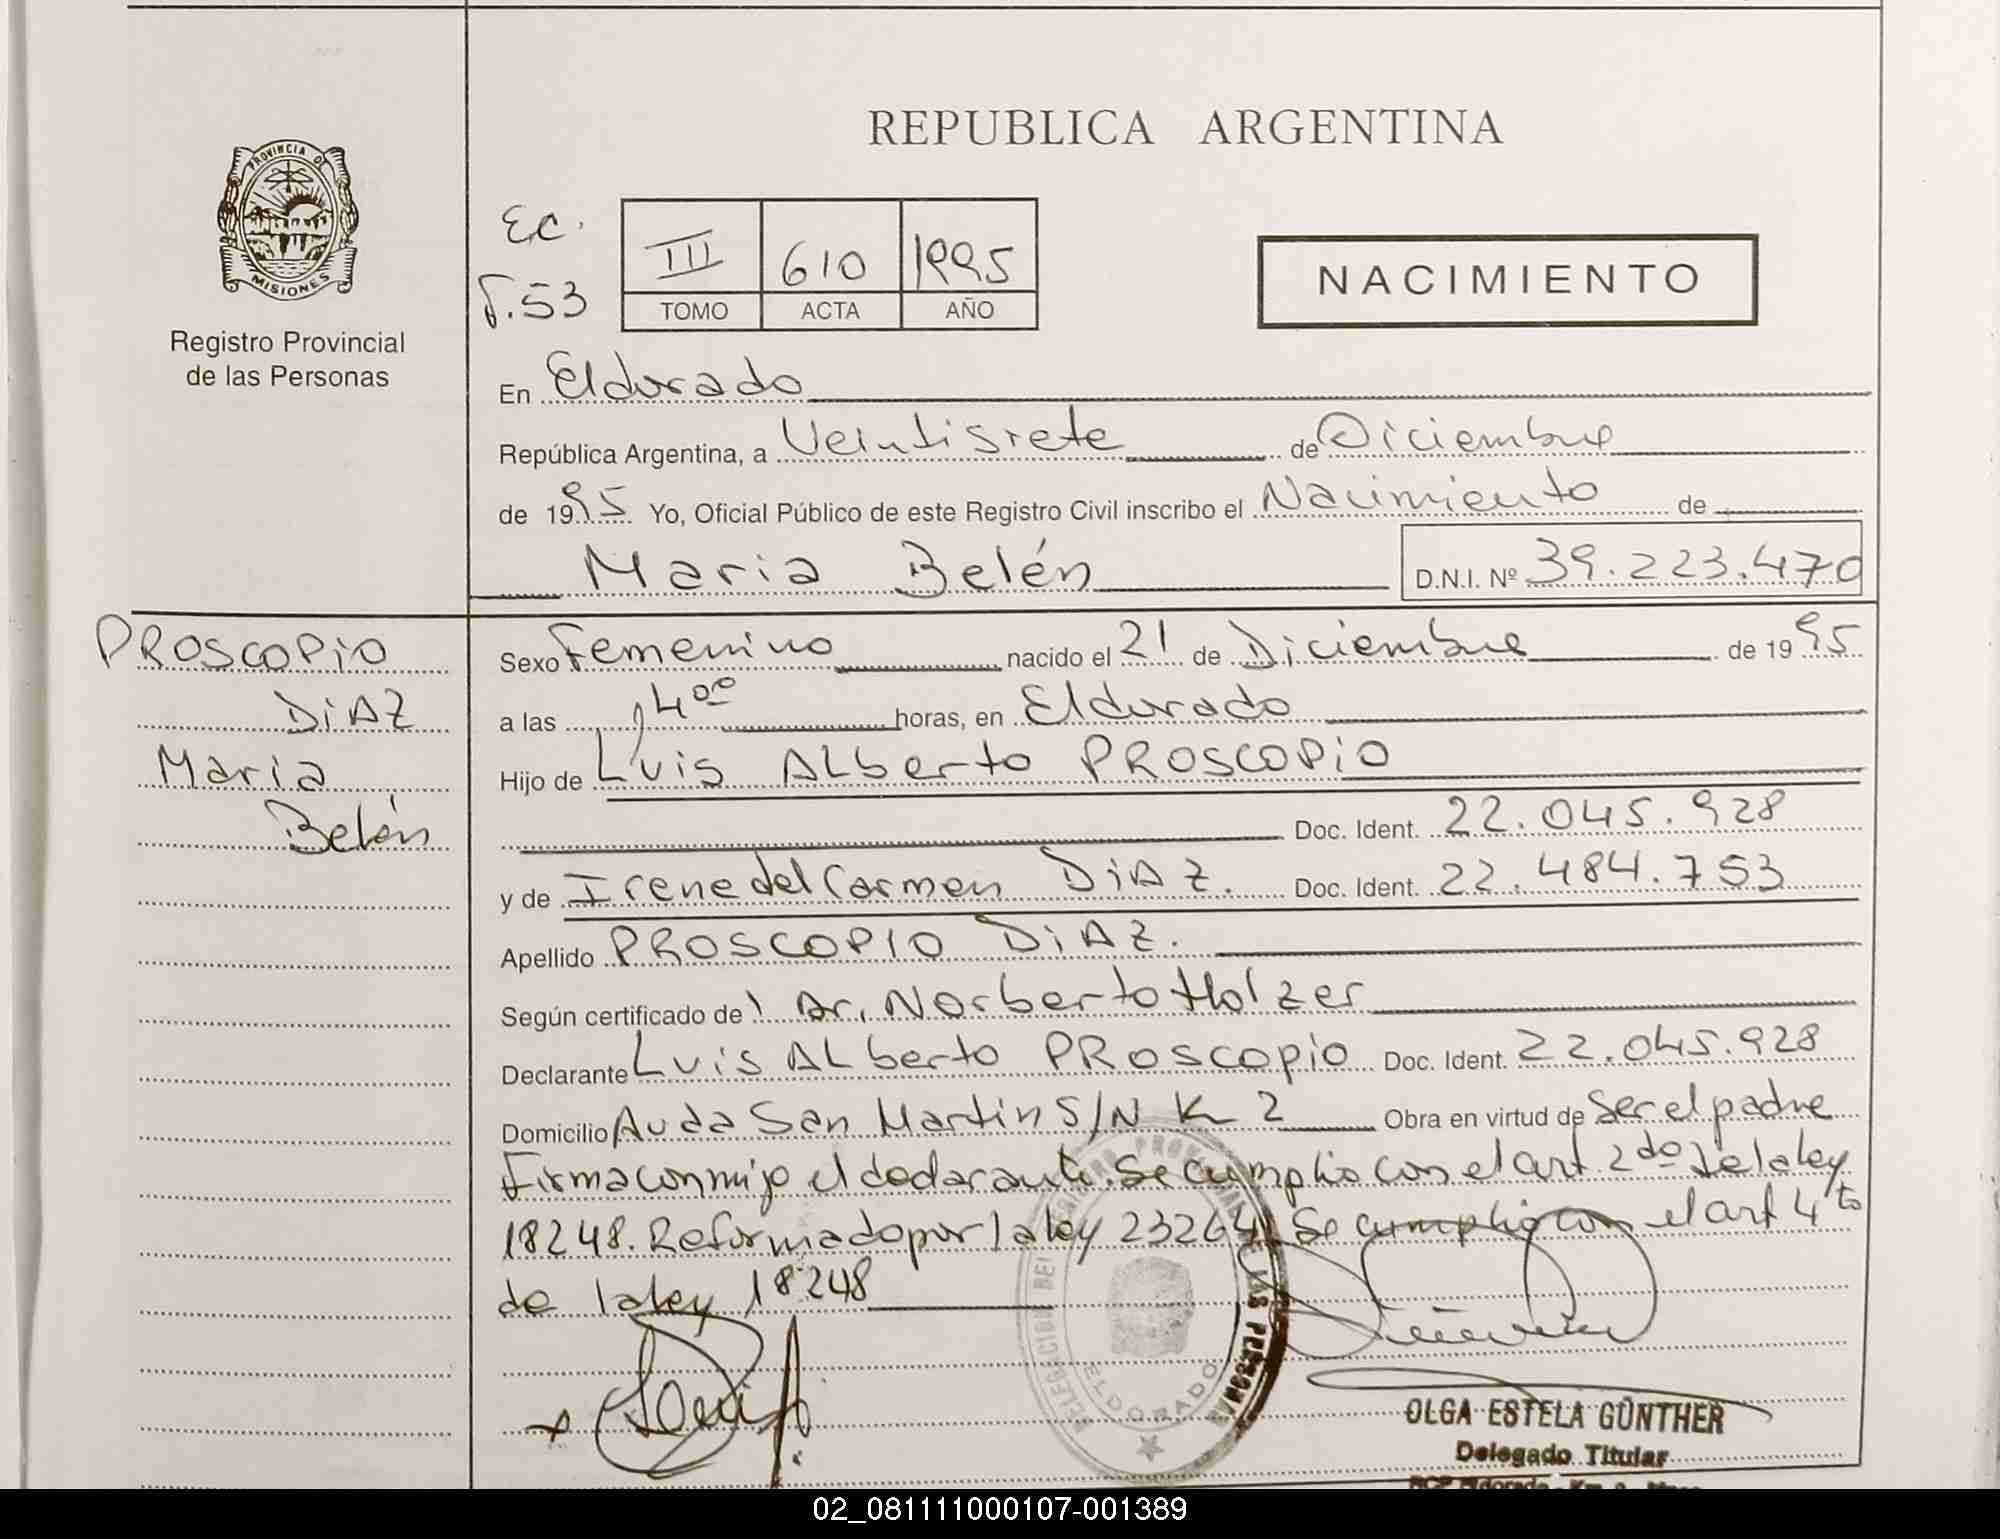 REPUBLICA ARGENTINA
PROVINCIA DE
MISIONES
Registro Provincial
de las Personas
E.C.
F.53
III 610 1995
TOMO ACTA AÑO
NACIMIENTO
En Eldorado
República Argentina, a Veintisiete de Diciembre
de 1995 Yo, Oficial Público de este Registro Civil inscribo el Nacimiento de
Maria Belén D.N.I. Nº 39.223.470
PROSCOPIO
DiAZ
Maria
Belén
Sexo Femenino nacido el 21 de Diciembre de 1995
a las 14⁰⁰ horas, en Eldorado
Hijo de Luis ALberto PROSCOPiO
Doc. Ident. 22.045.928
y de Irene del Carmen DiAZ. Doc. Ident. 22.484.753
Apellido PROSCOPIO DiAZ.
Según certificado del Dr. Norberto Holzer
Declarante Luis ALberto PROSCOPiO Doc. Ident. 22.045.928
Domicilio Avda San Martin S/N K 2 Obra en virtud de ser el padre
Firma conmigo el declarante. Se cumplio con el art 2do de la ley
18248. Reformado por la ley 23264. Se cumplio con el art 4to
de la ley 18248
DELEGACION DEL REGISTRO PROVINCIAL DE LAS PERSONAS
ELDORADO
OLGA ESTELA GÜNTHER
Delegado Titular
02_081111000107-001389